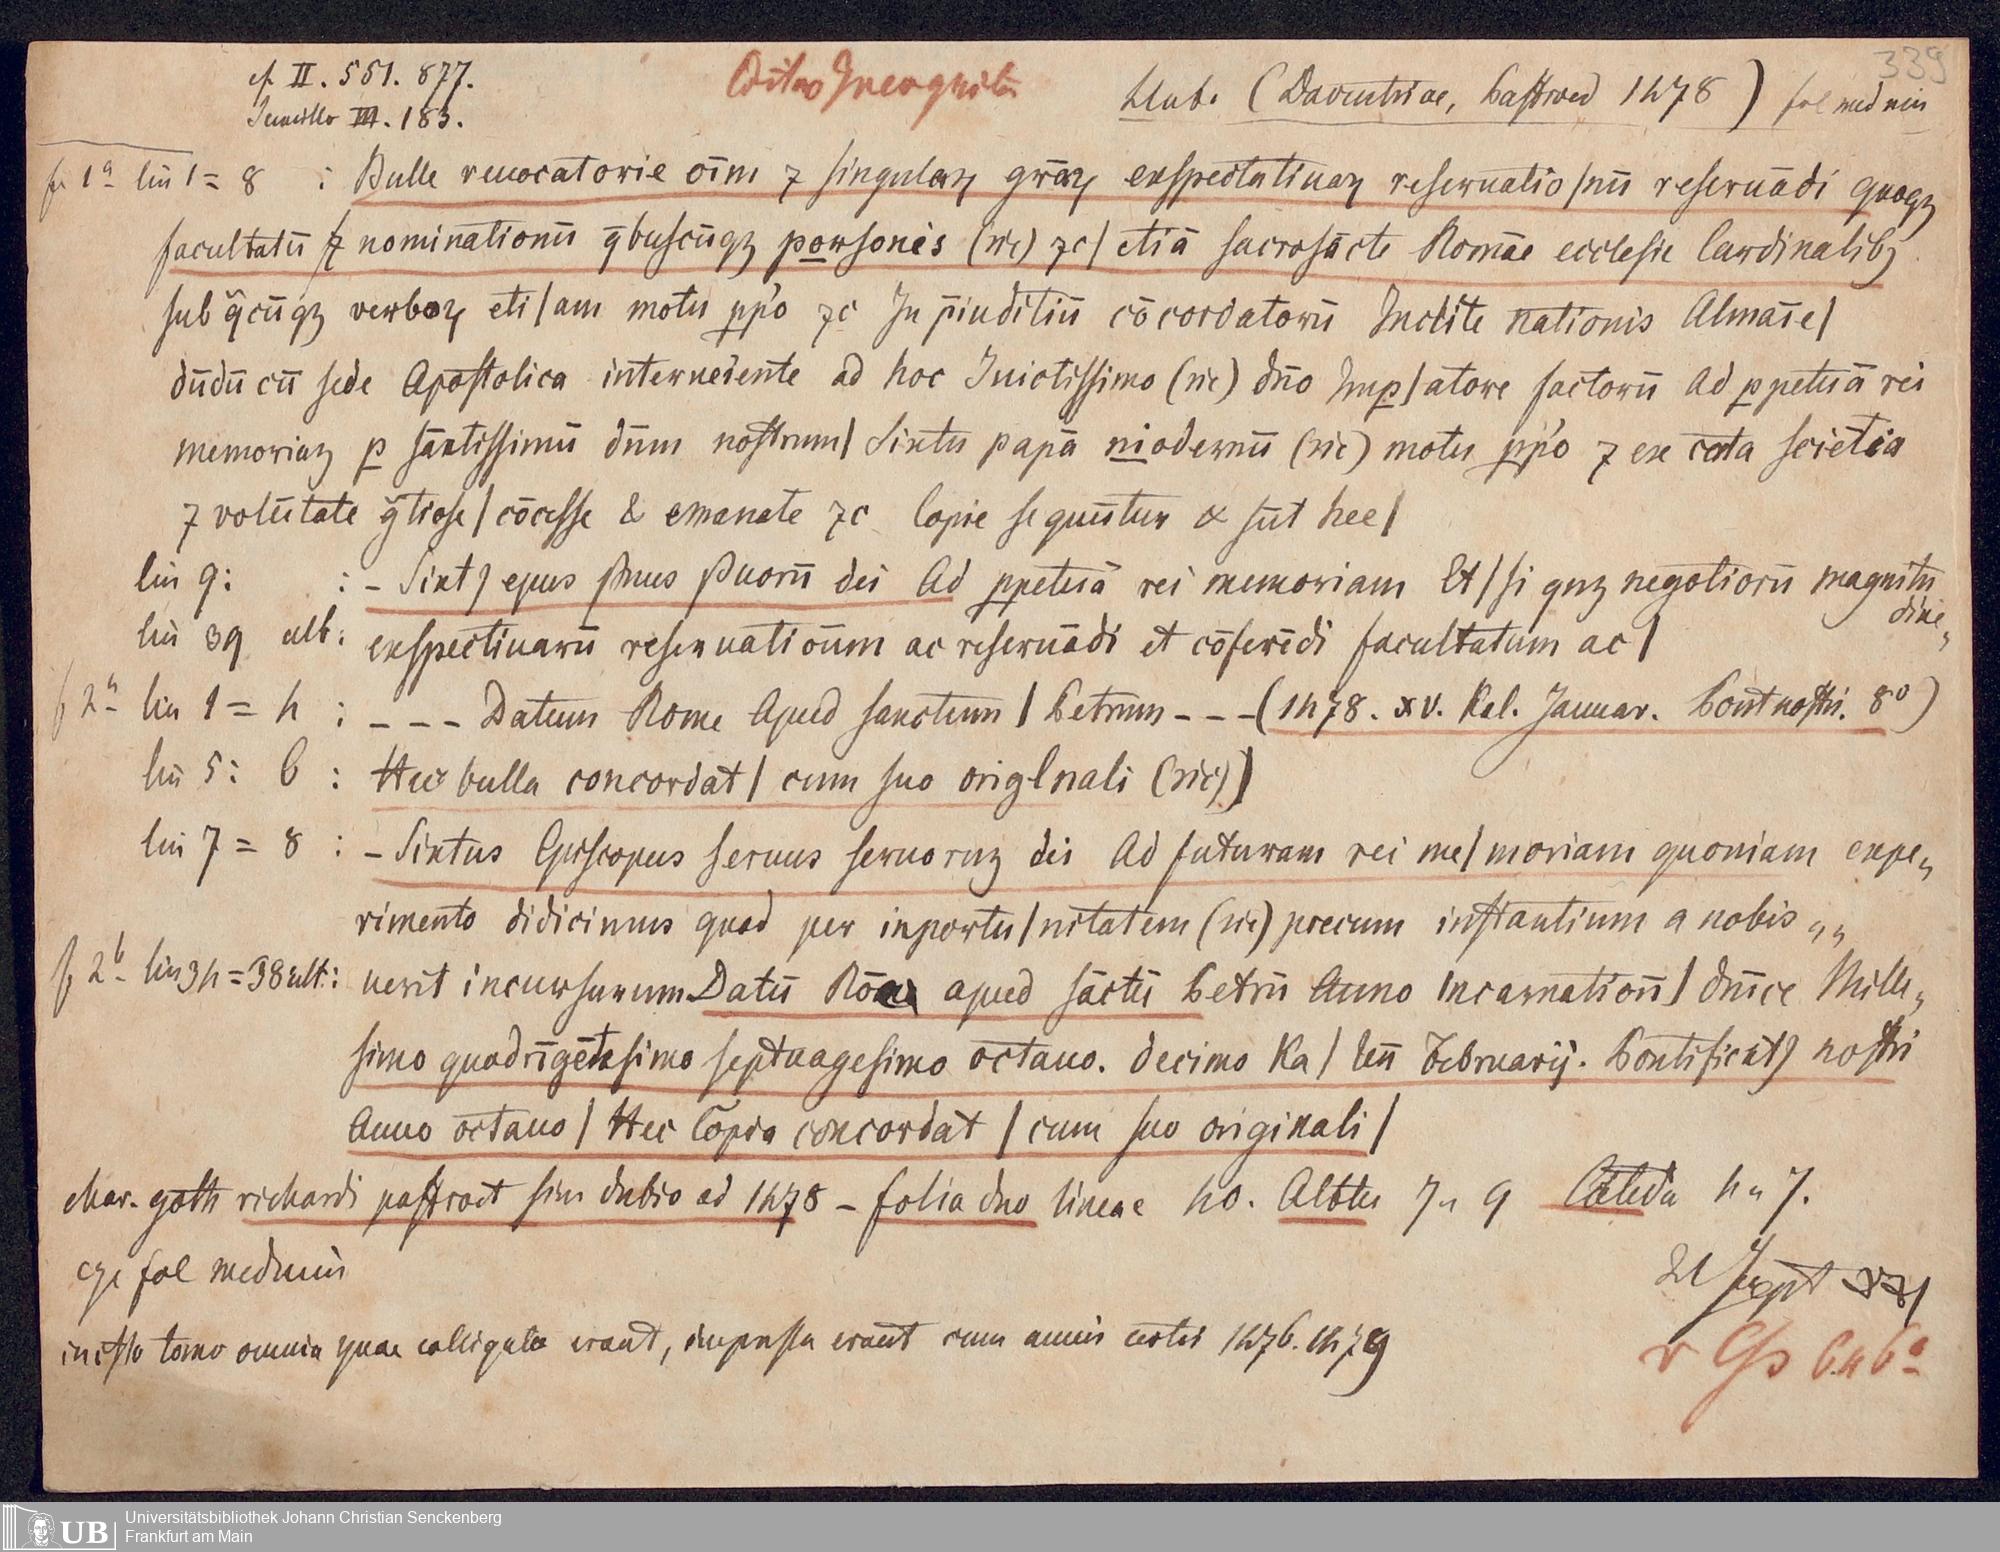 339
cf. II. 551. 877.
III. 183.
Editio Incognita
Hub. (Daventriae, Paffroed 1478) fol med min
f 1a lin 1 = 8 : Bulle reuocatorie oīm ⁊ singularꝝ grāꝝ exspectatiuaꝝ reseruatio/nū reseruādi quoqꝫ
facultatū ⁊ nominationū q̄buscūqꝫ porsonis (sic) ⁊c/ etiā sacrosācte Romāe ecclesie Cardinalibꝫ
sub q̄cūqꝫ verboꝝ eti/am motu ꝓpͦo ⁊c In p̄iuditiū cōcordatorū Inclite nationis Almaīe/
dūdū cū sede Apostolica interueiente ad hoc Iuictissimo (sic) dn̄o Imp̱/atore factorū Ad ꝑpetuā rei
memoriaꝫ ꝑ sāctissimū dn̄m nostrum/ Sixtū papā niodernū (sic) motu ꝓpͦo ⁊ ex c̄ota scietia
⁊ volūtate q̄tiose/ cōcesse & emanate ⁊c Copie sequūtur & sūt hee/
lin 9: : - Sixtꝰ epus ẜuus ẜuorū dei Ad ꝑpetuā rei memoriam Et/si quꝫ negotiorū magnitu
dine„
lin 39 ult: exspectiuarū reseruationum ac reseruādi et cōferēdi facultatum ac/
f 2a lin 1 = 4 : - - - Datum Rome Apud sanctum / Petrum - - - (1478. xv. Kal. Januar. Pont nostri. 8o)
lin 5: 6 : Hec bulla concordat/ cum suo origlnali (sic)/
lin 7 = 8 : - Sixtus Episcopus seruus seruoruꝫ dei Ad futuram rei me/moriam quoniam expe„
rimento didicimus quod per inportu/nitatem (sic) precum instantium a nobis „„
f 2b lin 34 = 38 ult: uerit incursurum Datū Rōe apud sāctū Petrū Anno Incarnationū/ dn̄ice Mille„
simo quadrīgētesimo septuagesimo octauo. decimo Ka/len̄ Februarij. Pontificatꝰ nostri
Anno octauo/ Hec Copia concordat / cum suo originali/
char. goth richardi paffroet sine dubio ad 1478 – folia duo lineae 40. Altttu 7 „ 9 4 „ 7.
fol medmin
in isto tomo omnia quae colligata erant, impressa erant cum annis certis 1476. 1479
21 Sept 881